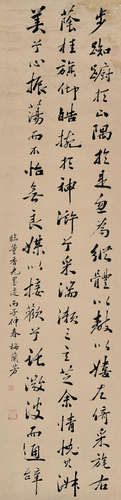 步踟躕於山隅於是忽焉縱體以敖以嬉左倚采旄右
蔭桂旗攘皓腕於神滸兮采湍瀨之玄芝余情悅其淑
美兮心振蕩而不怡無良媒以接歡兮託微波而通辭
臨董香光墨迹丙子仲春梅蘭芳